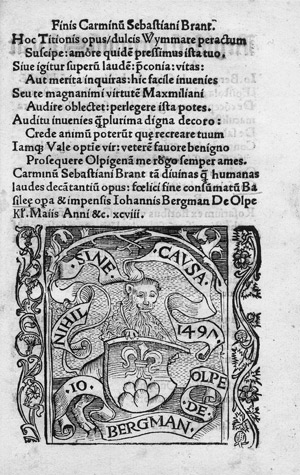 Finis Carminũ Sebastiani Brant.
Hoc Titionis opus/dulcis Wymmare peractum
Suscipe: amõre quidẽ pressimus ista tuo.
Siue igitur superũ laudẽ: p̃conia/vitas:
Aut merita inquiras: hic facile inuenies
Seu te magnanimi virtutẽ Maxmiliani
Audire oblectet: perlegere ista potes.
Auditu inuenies q̃plurima digna decoro:
Crede animũ poterũt quę recreare tuum
Iamq; Vale optie vir: veterẽ fauore benigno
Prosequere Olpigenã me rogo semper ames.
Carminũ Sebastiani Brant tã diuinas q̃ humanas
laudes decãtantiũ opus: fœlici fine consũmatũ Ba
sileę opa & impensis Iohannis Bergman De Olpe
Kl. Maiis Anni &c. xcviii.
NIHIL SINE CAVSA.
1497
IO BERGMAN. DE OLPE